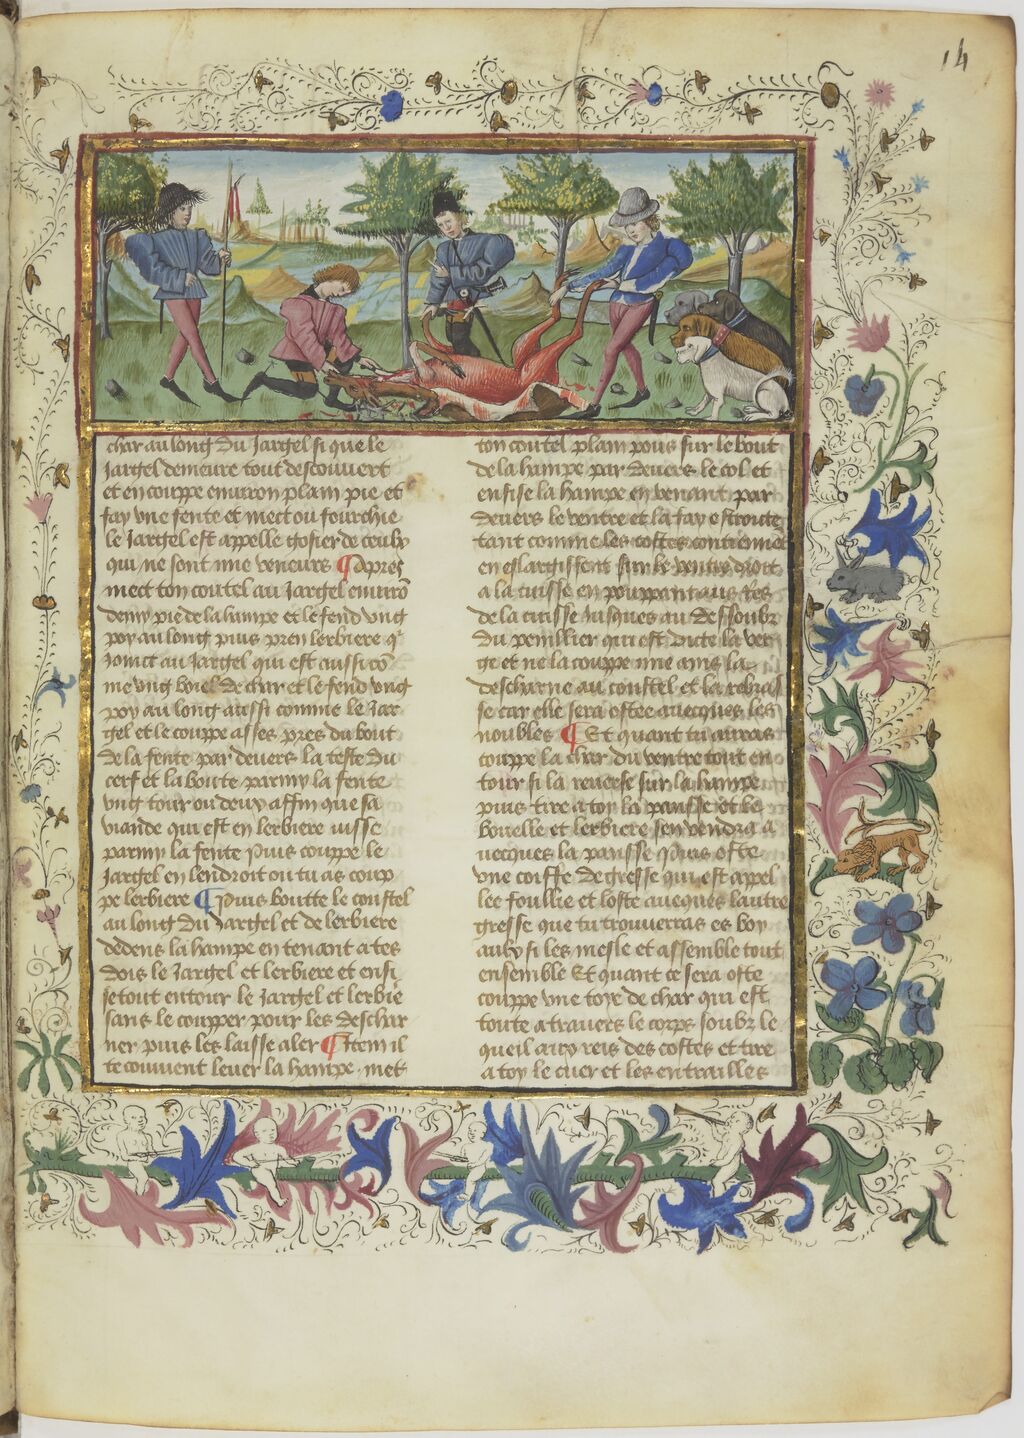 14
char au long du Jargel si que le
Jargel demeure tout descouvert
et en couppe environ plain pie et
fay une fente et mect ou fourchie
le Jargel est appelle gosier de ceulx
qui ne sont mie veneurs ¶ Apres
mect ton coutel au Jargel enuirō
demy pie de la hampe et le fend ung
poy au long puis pren lerbiere q
joinct au Jargel qui est aussi cō
me ung boiel de char et le fend ung
poy au long aussi comme le Jar
gel et le couppe asses pres du bout
de la fente par devers la teste du
cerf et la boute parmy la fente
ung tour ou deux affin que sa
viande qui est en lerbiere nisse
parmy la fente Puis couppe le
Jargel en lendroit ou tu as coup
pe lerbiere ¶ Puis boutte le coustel
au long du Jargel et de lerbiere
dedens la hampe en tenant a tes
dois le Jargel et lerbiere et ensi
se tout entour le Jargel et lerbie
sans le coupper pour les deschar
ner puis les laisse aler ¶ Item il
te convient lever la hampe met
ton coutel plain pous sur le bout
de la hampe par devers le col et
enfise la hampe en venant par
devers le ventre et la fay estroite
tant comme les costes contiennet
en eslargissent sur le ventre droit
a la cuisse en pouppant aux tes
de la cuisse Jusques au dessoubz
du penillier qui est dicte la ver
ge et ne la couppe mie ains la
descharne au coustel et la rebras
se car elle sera ostee avecques les
noubles ¶ Et quant tu auras
couppe la char du ventre tout en
tour si la reverse sur la hampe
puis tire a toy la pansse et le
bouelle et lerbiere sen vendra a
vecques la pansse Puis oste
une coiffe de gresse qui est appel
lee foullie et loste avecques lautre
gresse que tu trouverras es boy
aulx si les mesle et assemble tout
ensemble Et quant ce sera oste
couppe une toye de char qui est
toute a travers le corps soubz le
queil aux reis des costes et tire
a toy le cuer et les entrailles